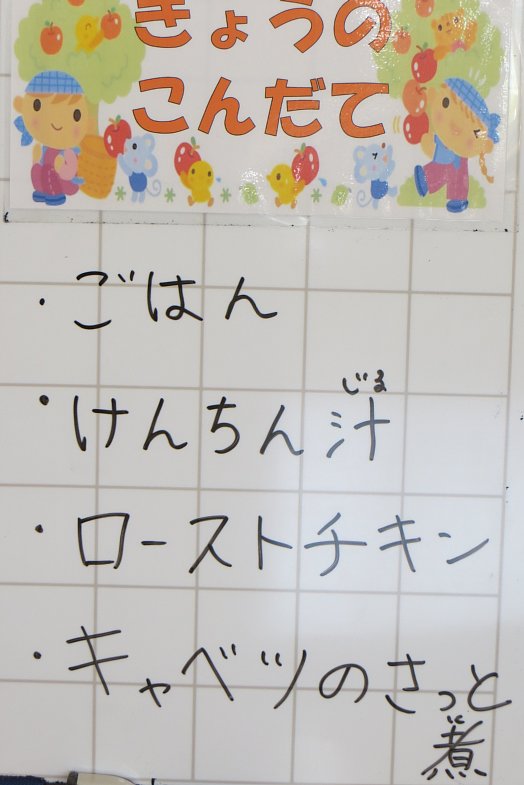 きょうの
こんだて
・ごはん
・けんちん汁
じる
・ローストチキン
・キャベツのさっと
煮